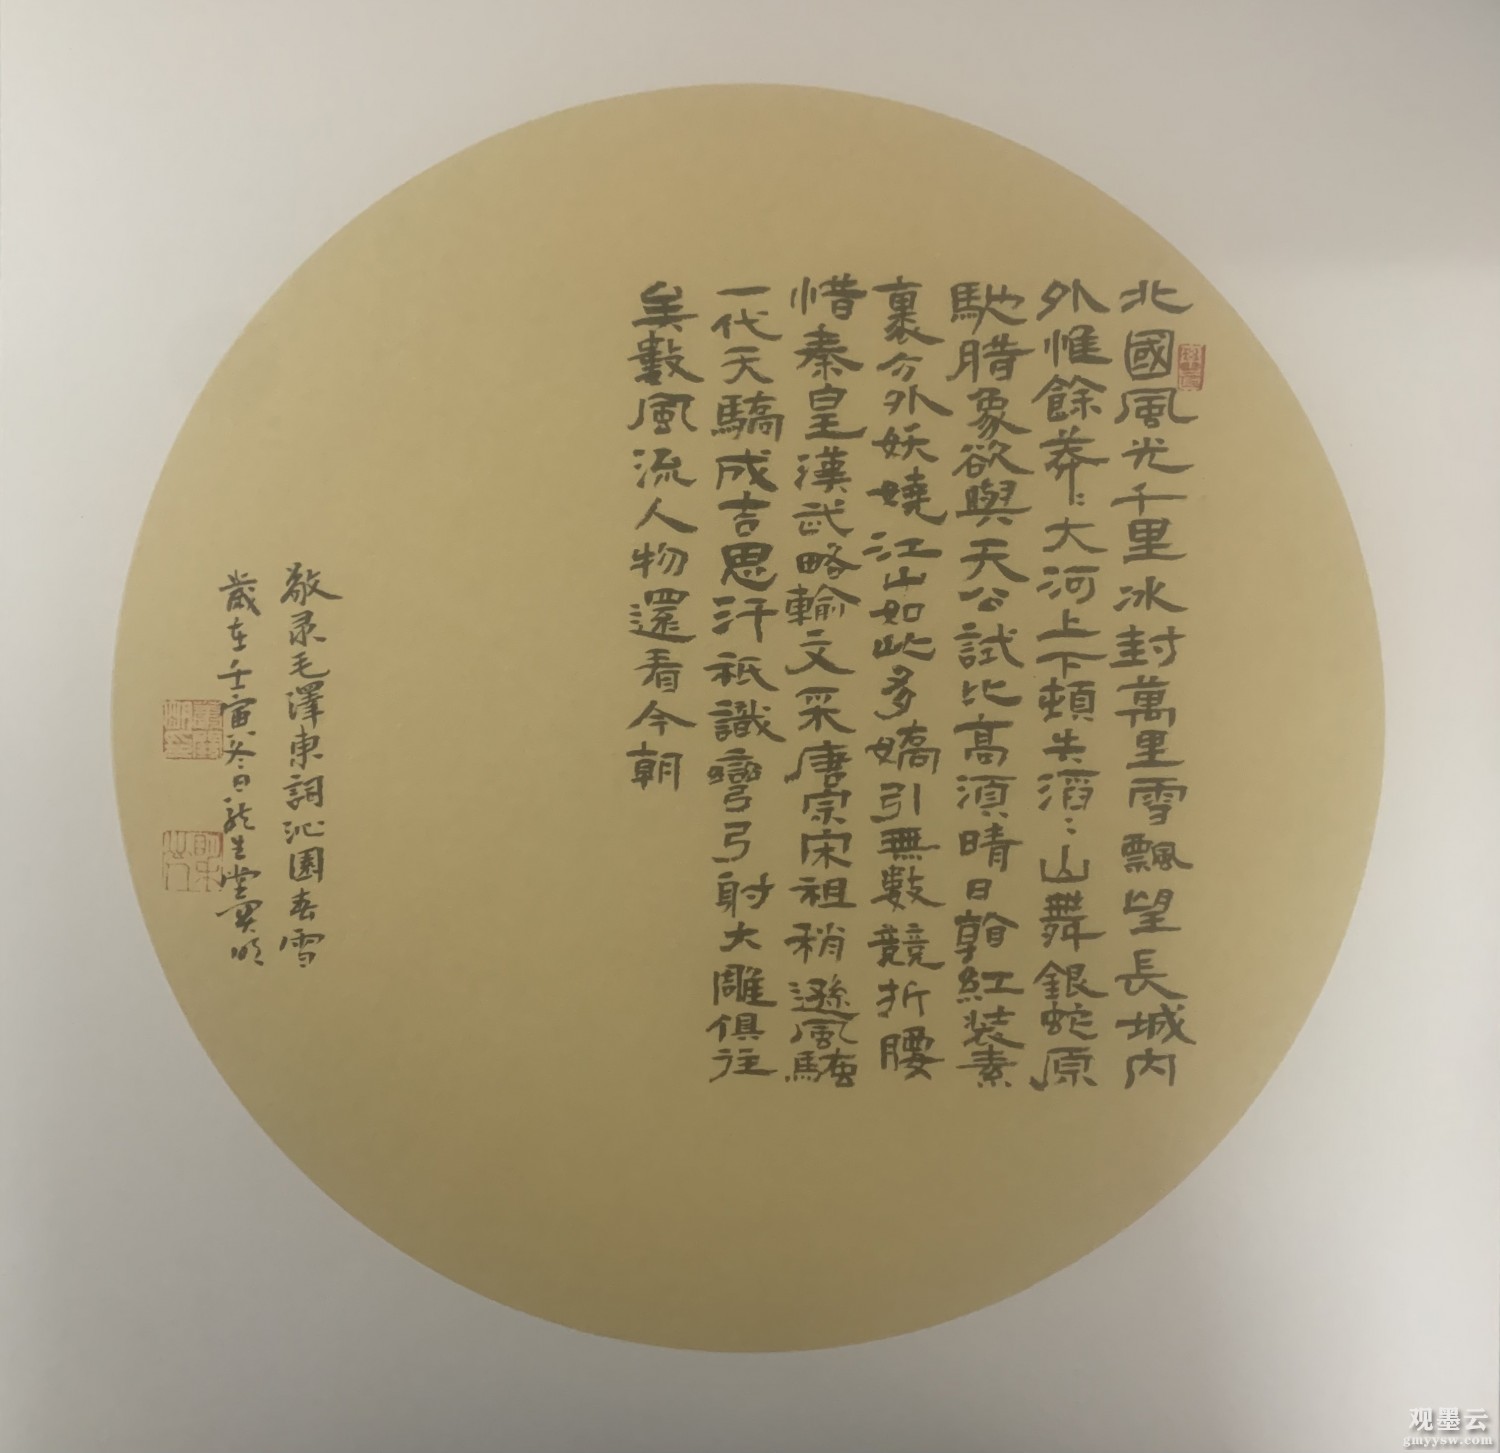 北國風光千里冰封萬里雪飄望長城內
外惟餘莽〻大河上下頓失滔〻山舞銀蛇原
馳腊象欲與天公試比高須晴日看紅装素
裹分外妖嬈江山如此多嬌引無數競折腰
惜秦皇漢武略輸文采唐宗宋祖稍遜風騷
一代天驕成吉思汗衹識彎弓射大雕俱往
矣數風流人物還看今朝
敬录毛澤東詞沁園春雪
歲在壬寅冬日龍生堂
观墨云
gmyysw.com